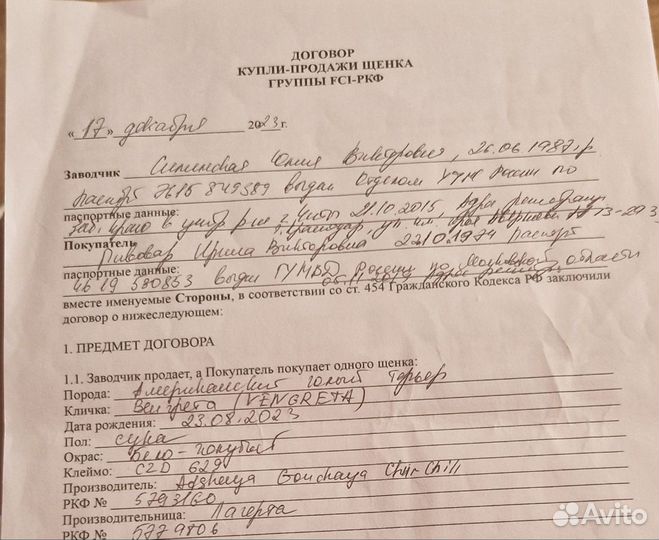 ДОГОВОР
КУПЛИ-ПРОДАЖИ ЩЕНКА
ГРУППЫ FCI-РКФ
«17» декабря 2023 г.
Заводчик Силинская Юлия Викторовна, 26.06.1987г.р
паспорт 7615 849589 выдан Отделом УФМС России по
паспортные данные:
Заб. краю в центр. р-не г. Читы 21.10.2015, Адрес регистрации
г. Краснодар, ул. им. 13-293
Покупатель Пивовар Ирина Викторовна 22.10.1974 Паспорт
паспортные данные:
4619 580853 выдан ГУ МВД России по Московской области
вместе именуемые Стороны, в соответствии со ст. 454 Гражданского Кодекса РФ заключили
договор о нижеследующем:
1. ПРЕДМЕТ ДОГОВОРА
1.1. Заводчик продает, а Покупатель покупает одного щенка:
Порода: Американский голый терьер
Кличка: Венгрета (VENGRETA)
Дата рождения: 23.08.2023
Пол: сука
Окрас: Бело-голубой
Клеймо: CZD 629
Производитель: Adzhaya Gouchaya Churchill
РКФ № 5793160
Производительница: Лагерта
РКФ № 5779806
Avito